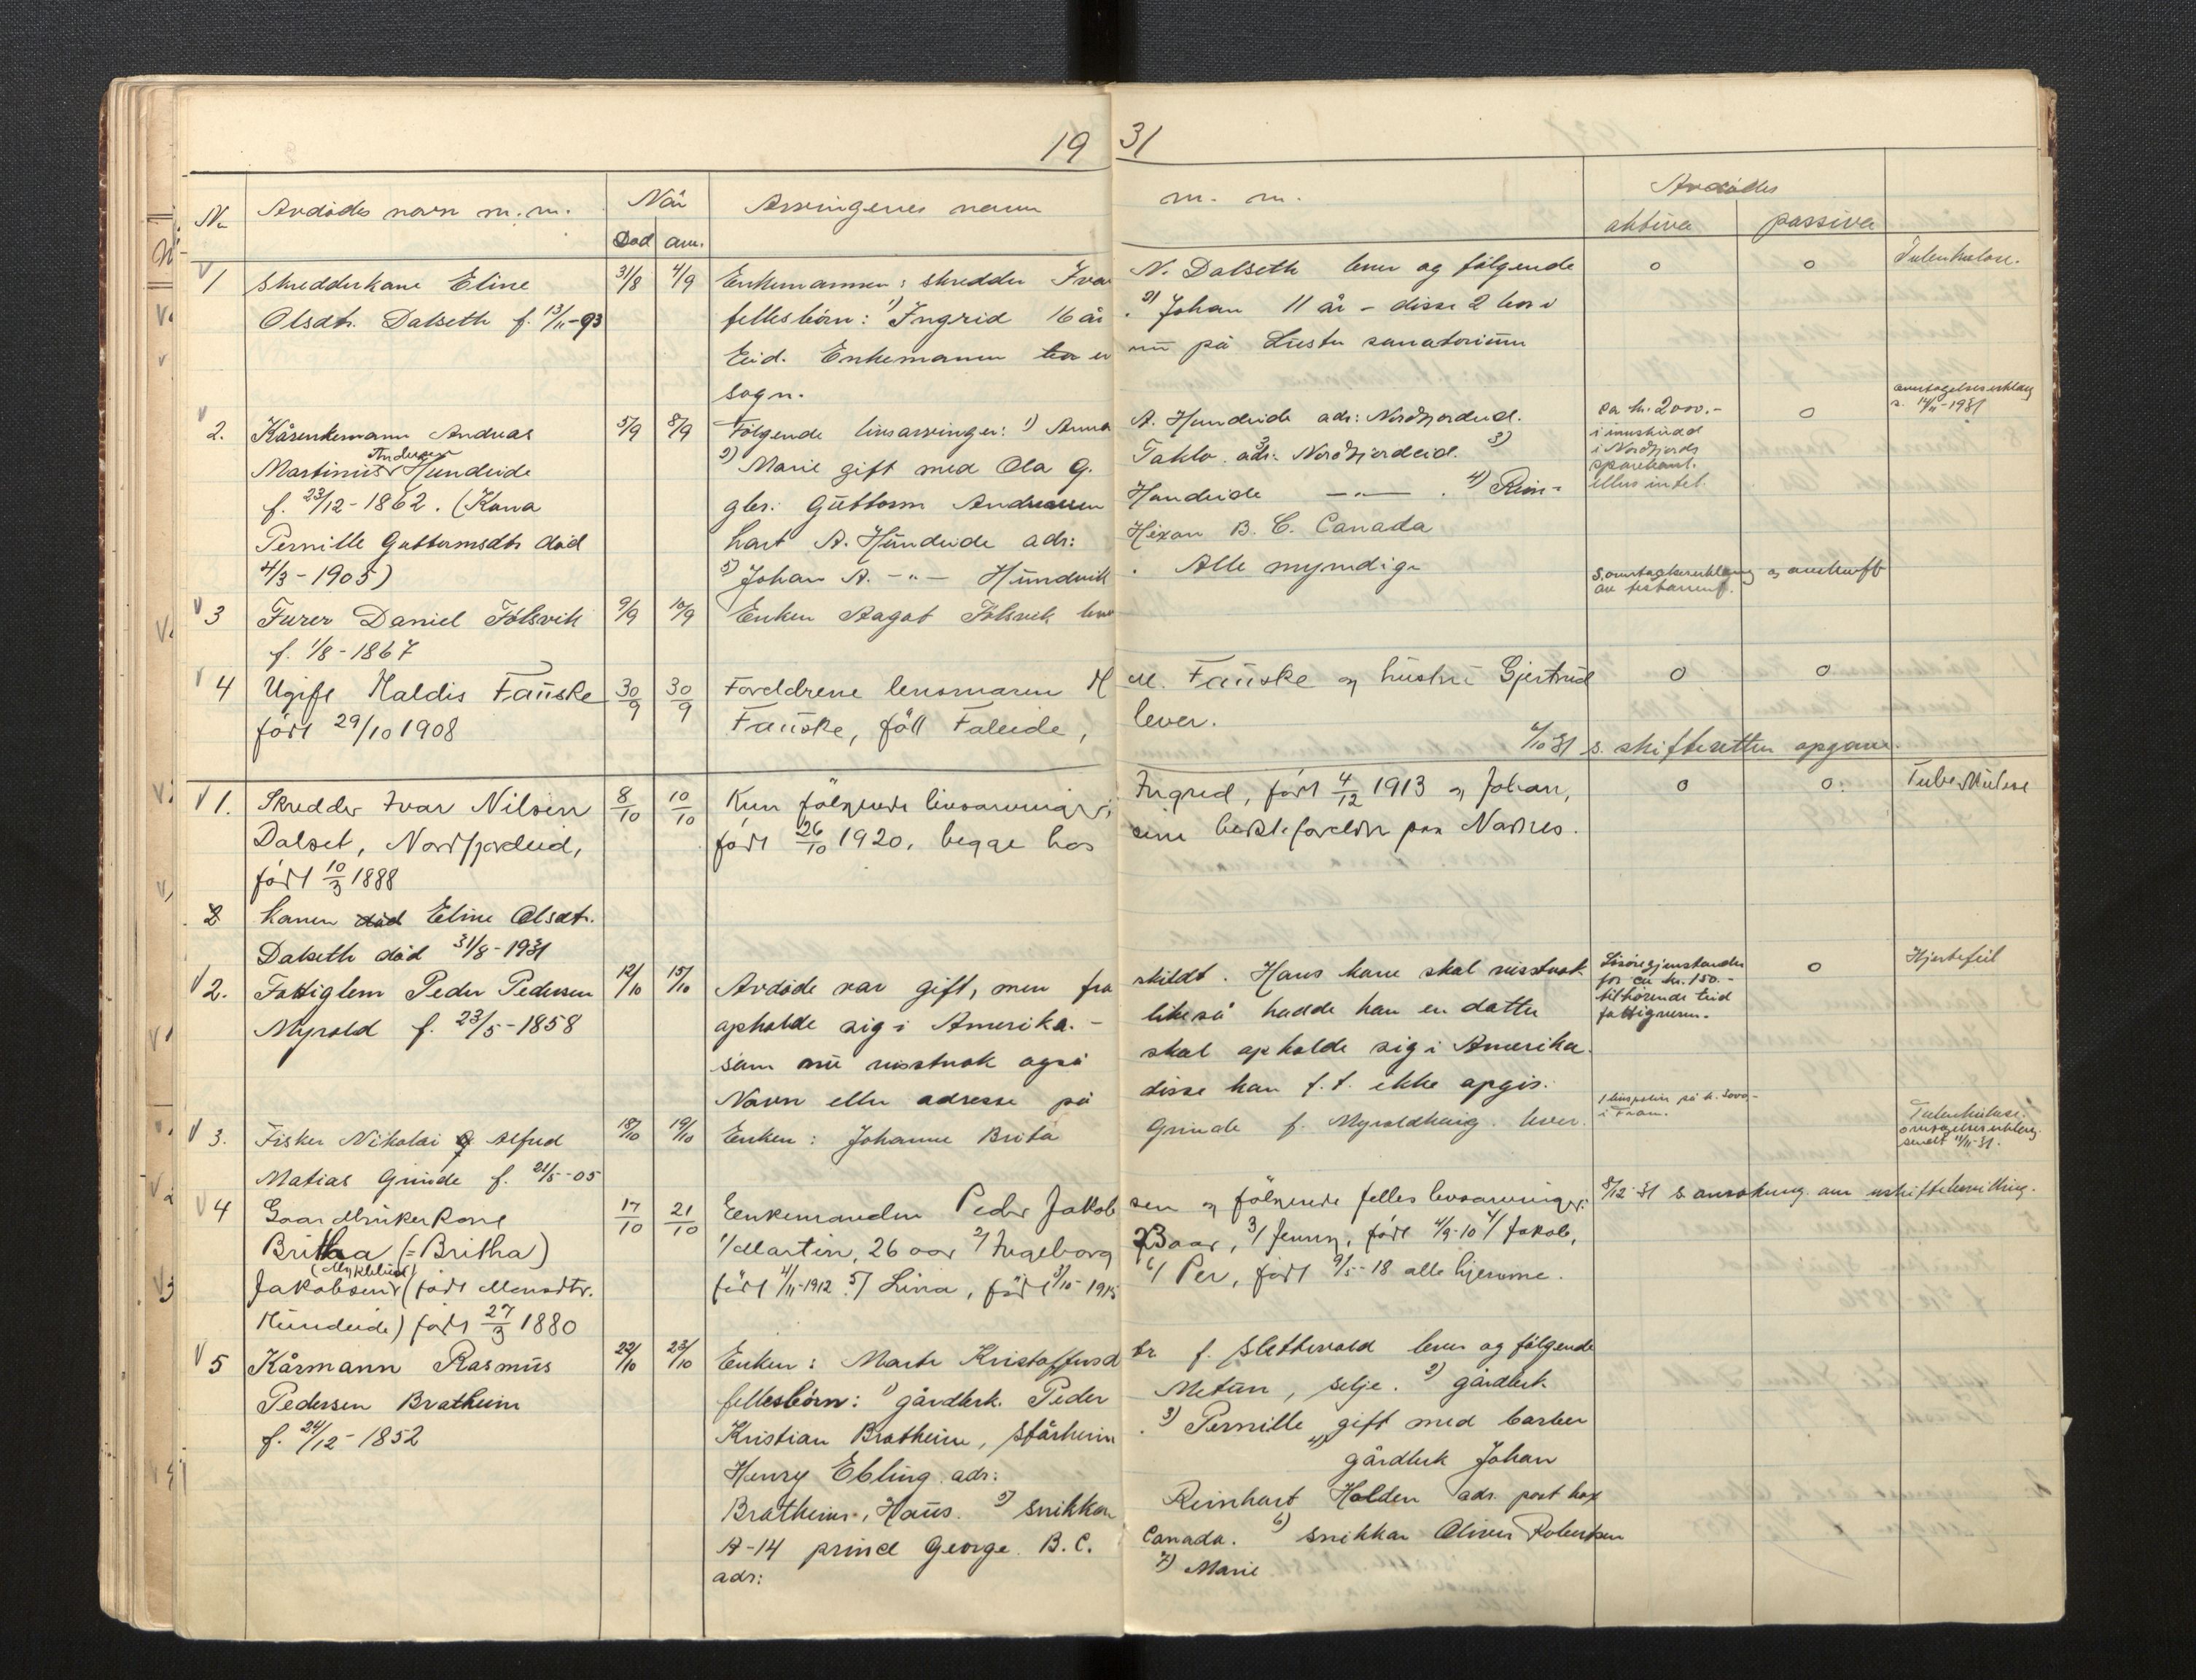 19 31
Nr. Avdødes navn m.m. Når Arvingenes navn m. m. Avdødes
Død anm. aktiva passiva
1 Skredderkone Eline 31/8 4/9 Enkemannen: skredder Ivar N. Dalseth lever og følgende o o Tuberkulose.
Olsdtr. Dalseth f. 13/11-93 fellesbörn: 1) Ingrid 16 år . 2) Johan 11 år - disse 2 bor i
Eid. Enkemannen er nu på Luster sanatorium
sogn.
2. Kårenkemann Andreas 5/9 8/9 Følgende livsarvinger: 1) Anna A. Hundeide adr: Nordfjordeid. ca kr. 2000.- o
Martinus Andersen Hundeide 2) Marie gift med Ola G. Taklo adr: Nordfjordeid. 3) i innskudd i Nordfjords sparebank. ellers intet.
f. 23/12-1862. (Kona gbr. Guttorm Andreassen Hundeide -"- . 4) Rein-
Pernille Guttormsdtr død hart A. Hundeide adr: Hixon B. C. Canada
4/3-1905) 5) Johan A. -"- Hundvik . Alle myndige
3 Furer Daniel Tolsvik 9/9 10/9 Enken Ragat Tolsvik lever
f. 1/8-1867
4 Ugift Maldis Fauske 30/9 30/9 Foreldrene lensmann M M. Fauske og hustru Gjertrud o o
født 29/10 1908 Fauske, föll Faleide, lever.
6/10 31 s. skifteretten opgave.
1. Skredder Ivar Nilsen 8/10 10/10 Kun følgende livsarvinger: Ingrid, født 4/12 1913 og Johan, o o Tuberkulose
Dalset, Nordfjordeid, født 26/10 1920, begge hos sine besteforeldre paa Nadnes.
født 10/3 1888
2 konen død Eline Olsdtr.
Dalseth død 31/8-1931
2. Fattiglem Peder Pedersen 12/10 15/10 Avdøde var gift, men fra skildt. Hans kone skal visstnok Løsøregjenstander for ca kr. 150.- tilhørende Eid fattigvesen. o Hjertefeil
Myrold f. 23/5-1858 opholde sig i Amerika. - likeså hadde han en datter
som nu visstnok også skal opholde sig i Amerika.
Navn eller adresse på disse kan f.t. ikke opgis.
3. Fisker Nikolai Alfred 18/10 19/10 Enken: Johanne Brita Grinde f. Myroldhaug. lever. 1 livspolise på kr. i Fram. Tuberkulose.
Matias Grinde f. 21/5-05
4 Gaardbrukerkone 17/10 21/10 Enkemanden Peder Jakob sen og følgende felles livsarvinger: 8/12-31 s. ansøkning om uskiftebevilling.
Britha (=Britha) 1/ Martin, 26 aar 2/ Ingeborg 23 aar, 3/ Jenny, født 4/9-10 4/ Jakob,
Jakobsen (Myklebust) (født Monsdtr. født 4/11-1912 5/ Lina, født 3/10-1915 6/ Per, født 9/5-18 alle hjemme.
Hundeide) født 27/3 1880
5 Kårmann Rasmus 22/10 23/10 Enken: Marte Kristoffersd tr f. Slettevold lever og følgende
Pedersen Bratheim fellesbörn: 1) gårdbrk. Peder Metun, Selje. 2) gårdbrk
f. 24/12-1852 Kristian Bratheim, Stårheim . 3) Pernille gift med barber
Henry Ebling. adr: 4) gårdbrk Johan
Bratheim, Haus. 5) snikkar Reinhart Holden adr. post box
A-14 prince George. B.C. Canada. 6) snikkar Oliver Robertsen
adr: 7) Marie